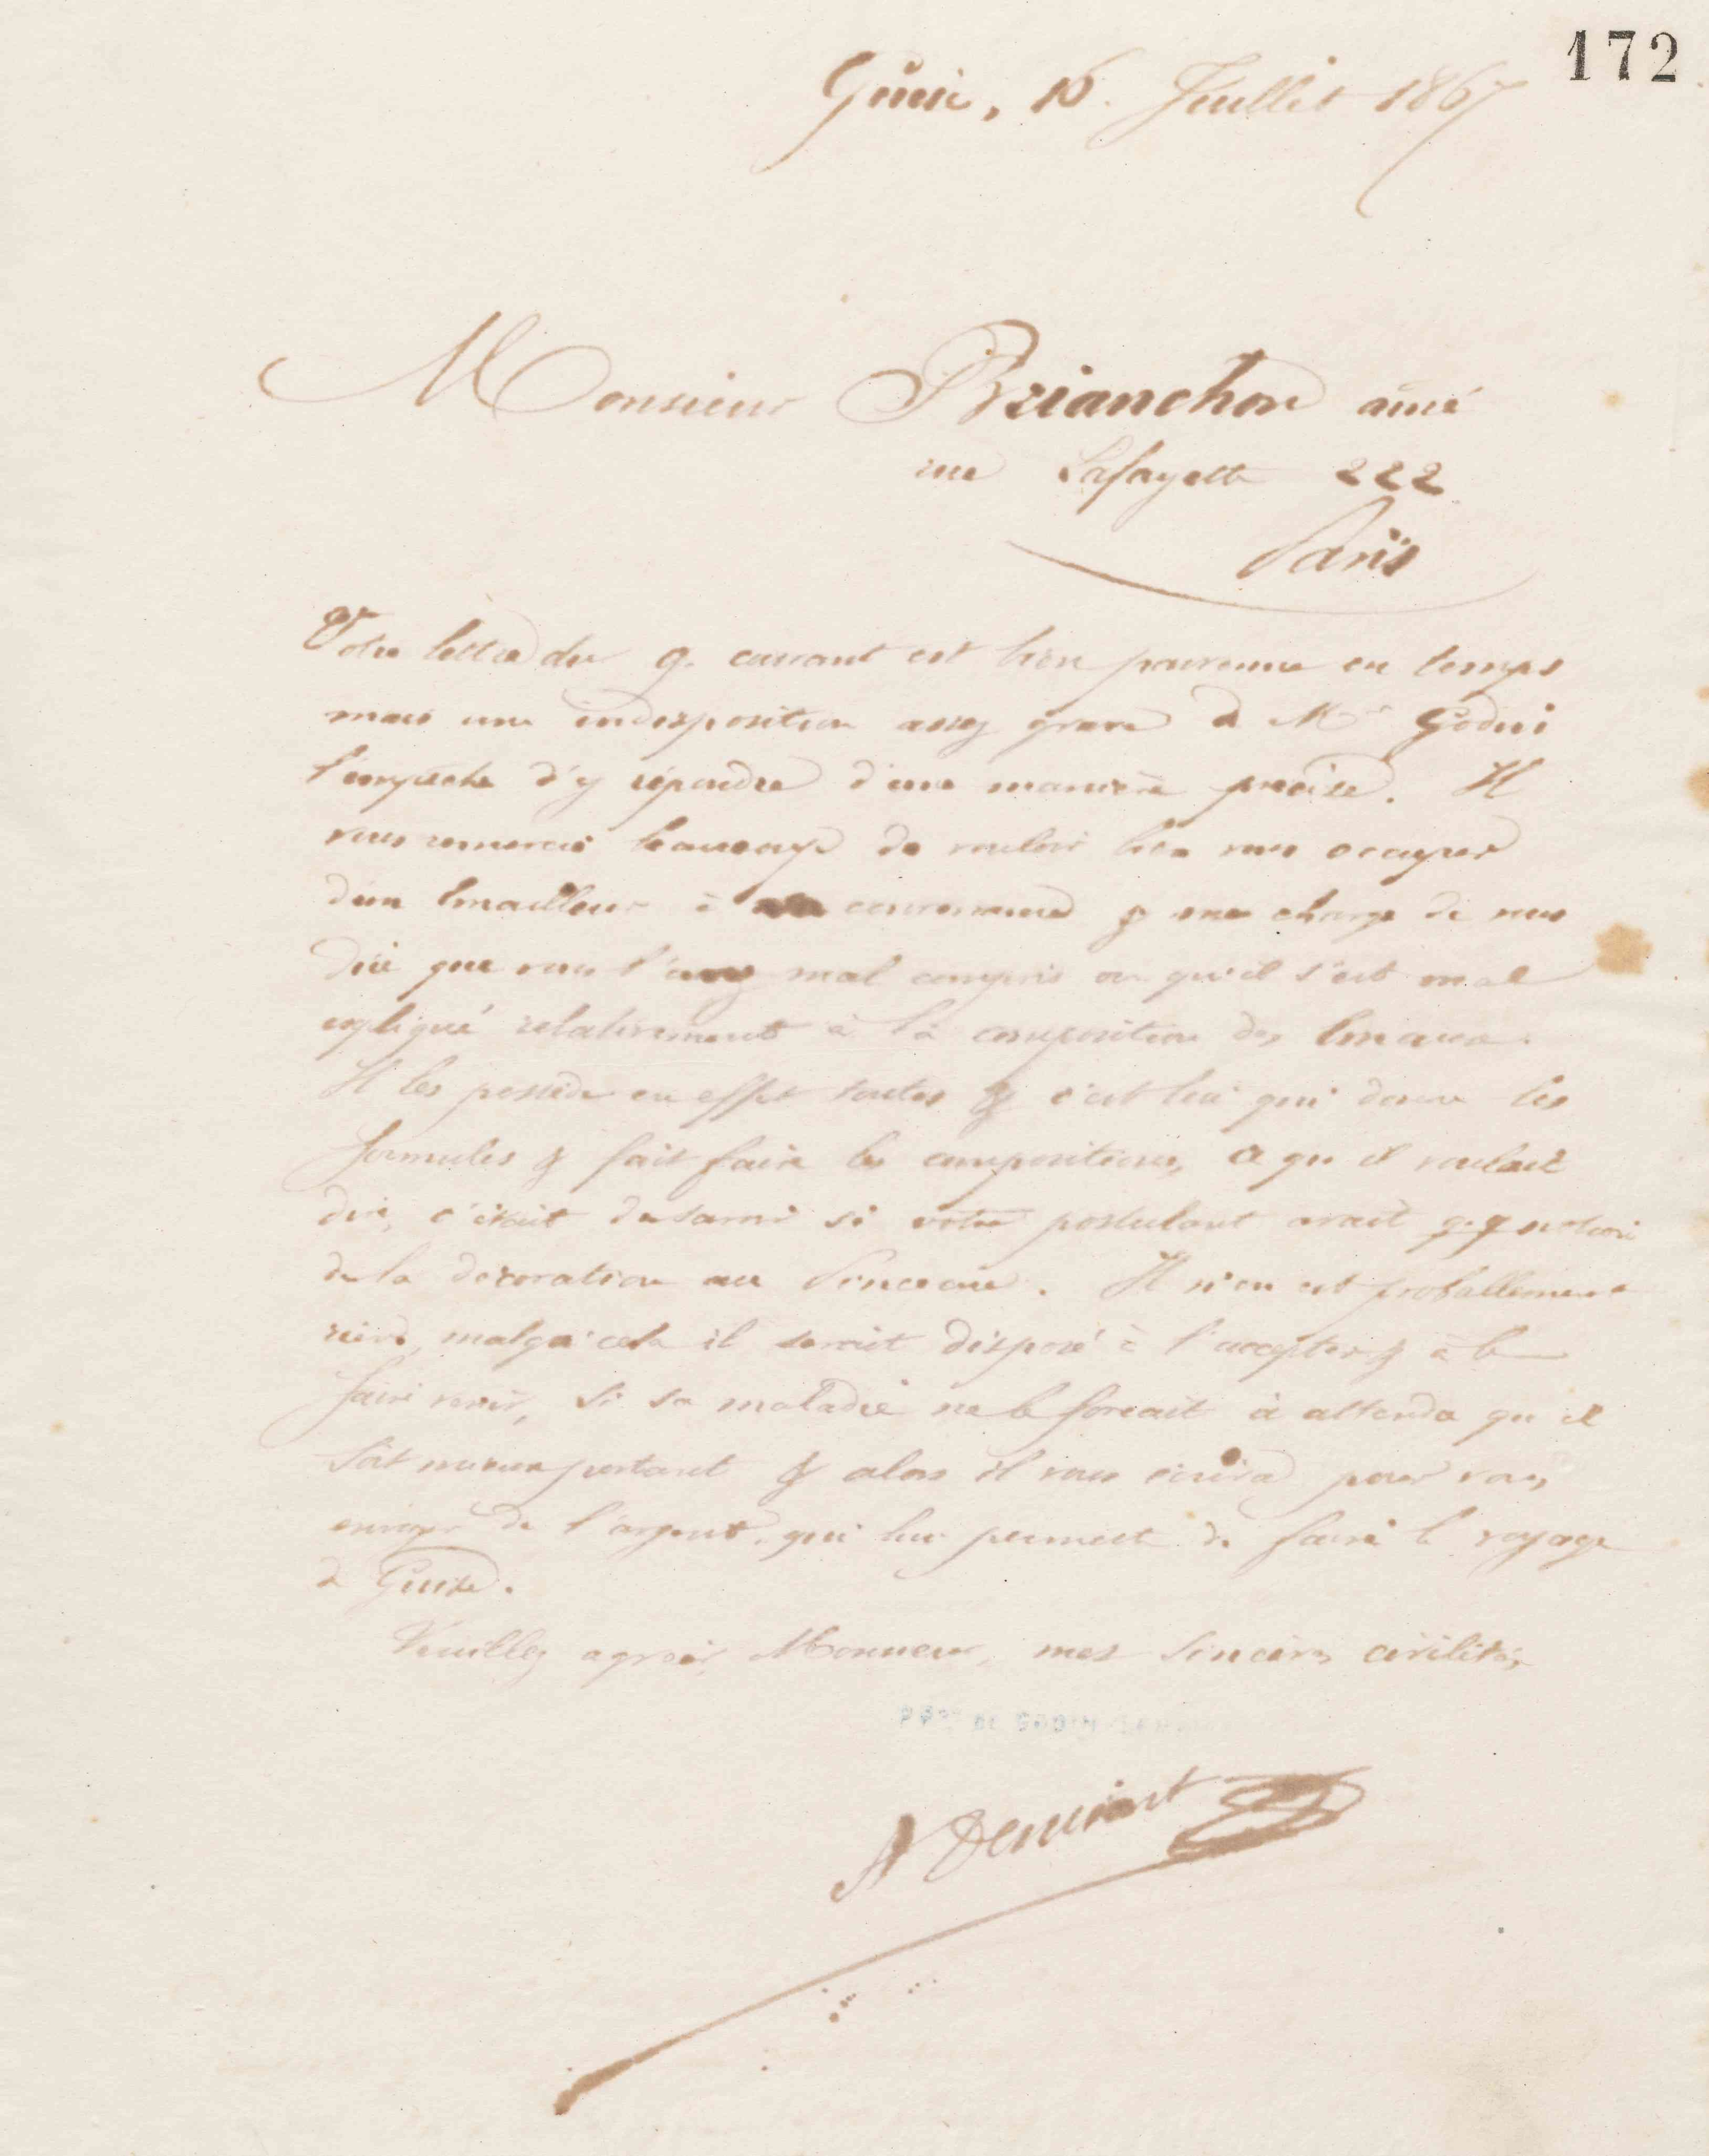 172
Guise, 16 Juillet 1867
Monsieur Brianchon aîné
rue Lafayette 222
Paris
Votre lettre du 9 courant est bien parvenue en temps
mais une indisposition assez grave de Mr Godin
l'empêche d'y répondre d'une manière précise. Il
vous remercie beaucoup de vouloir bien vous occuper
d'un Emailleur à & me charge de vous
dire que vous l'avez mal compris ou qu'il s'est mal
expliqué relativement à la composition des Emaux.
Il les possède en effet toutes & c'est lui qui donne les
formules & fait faire les compositions, ce qu'il voulait
dire, c'était de savoir si votre postulant avait q.q notion
de la décoration au Pinceau. Il n'en est probablement
rien, malgré cela il serait disposé à l'accepter & à le
faire venir, si sa maladie ne le forçait à attendre qu'il
soit mieux portant & alors il vous écrira pour vous
envoyer de l'argent, qui lui permette de faire le voyage
de Guise.
Veuillez agréer, Monsieur, mes sincères civilités
PPon DE GODIN